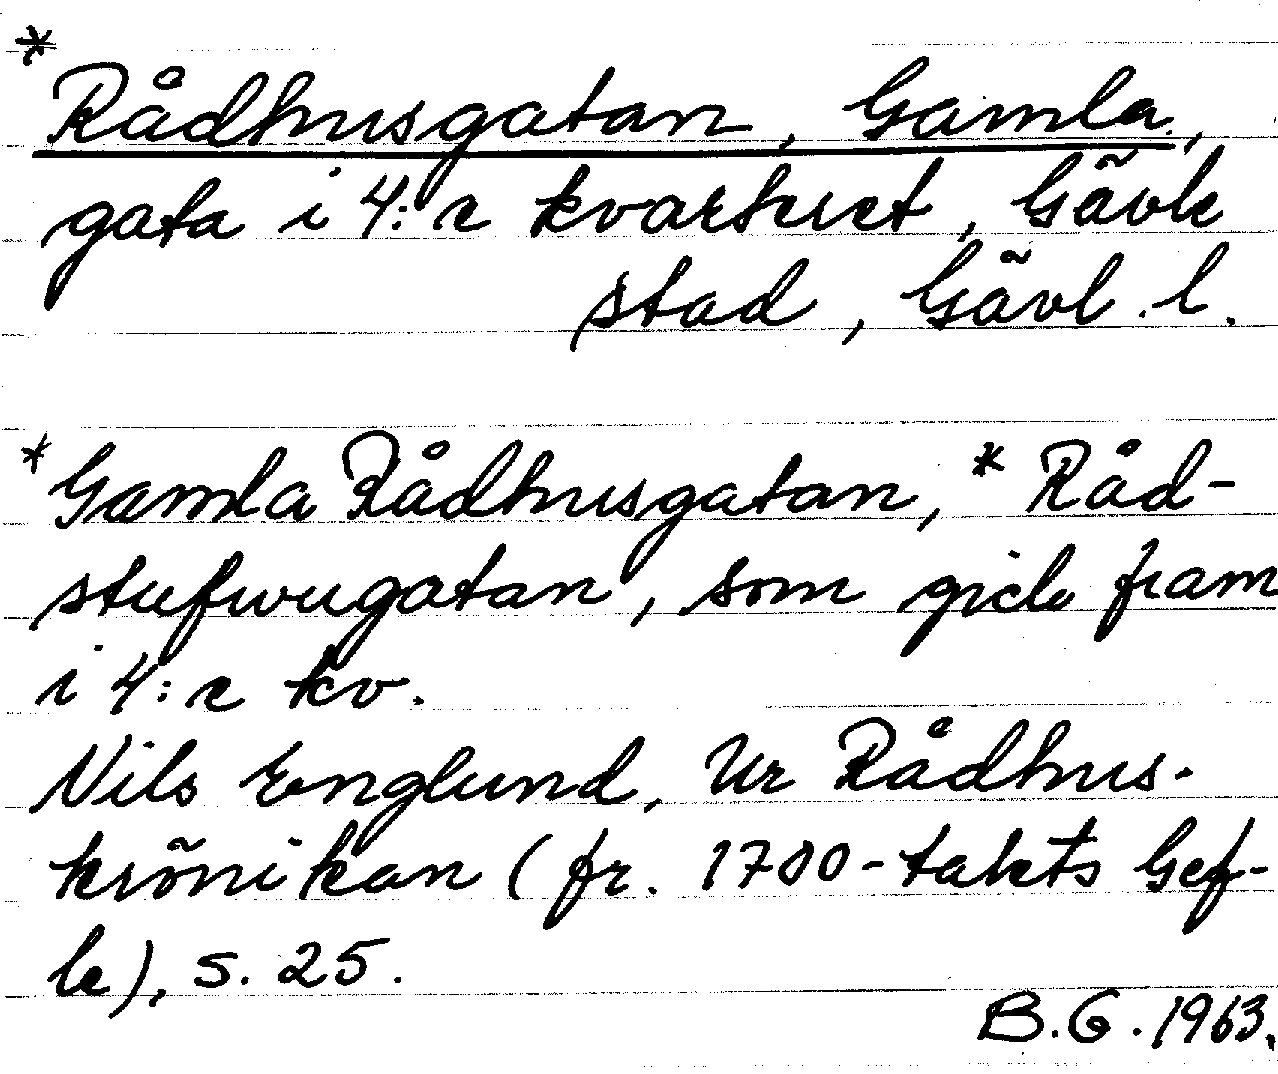 *
Rådhusgatan, Gamla,
gata i 4:e kvarteret, Gävle
stad, Gävl. l.
*Gamla Rådhusgatan, *Råd-
stufwugatan, som gick fram
i 4:e kv.
Nils Englund, Ur Rådhus-
krönikan (fr. 1700-talets Gef-
le), s. 25.
B.G. 1963.